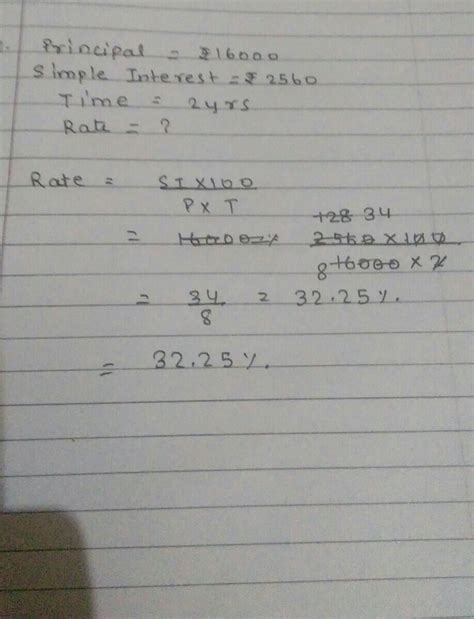 Principal = ₹16000
Simple Interest = ₹ 2560
Time = 2yrs
Rate = ?
Rate = SI × 100
P × T
128 34
= 16000 2560 × 100
8 16000 × 2
= 34 = 32.25%.
8
= 32.25%.